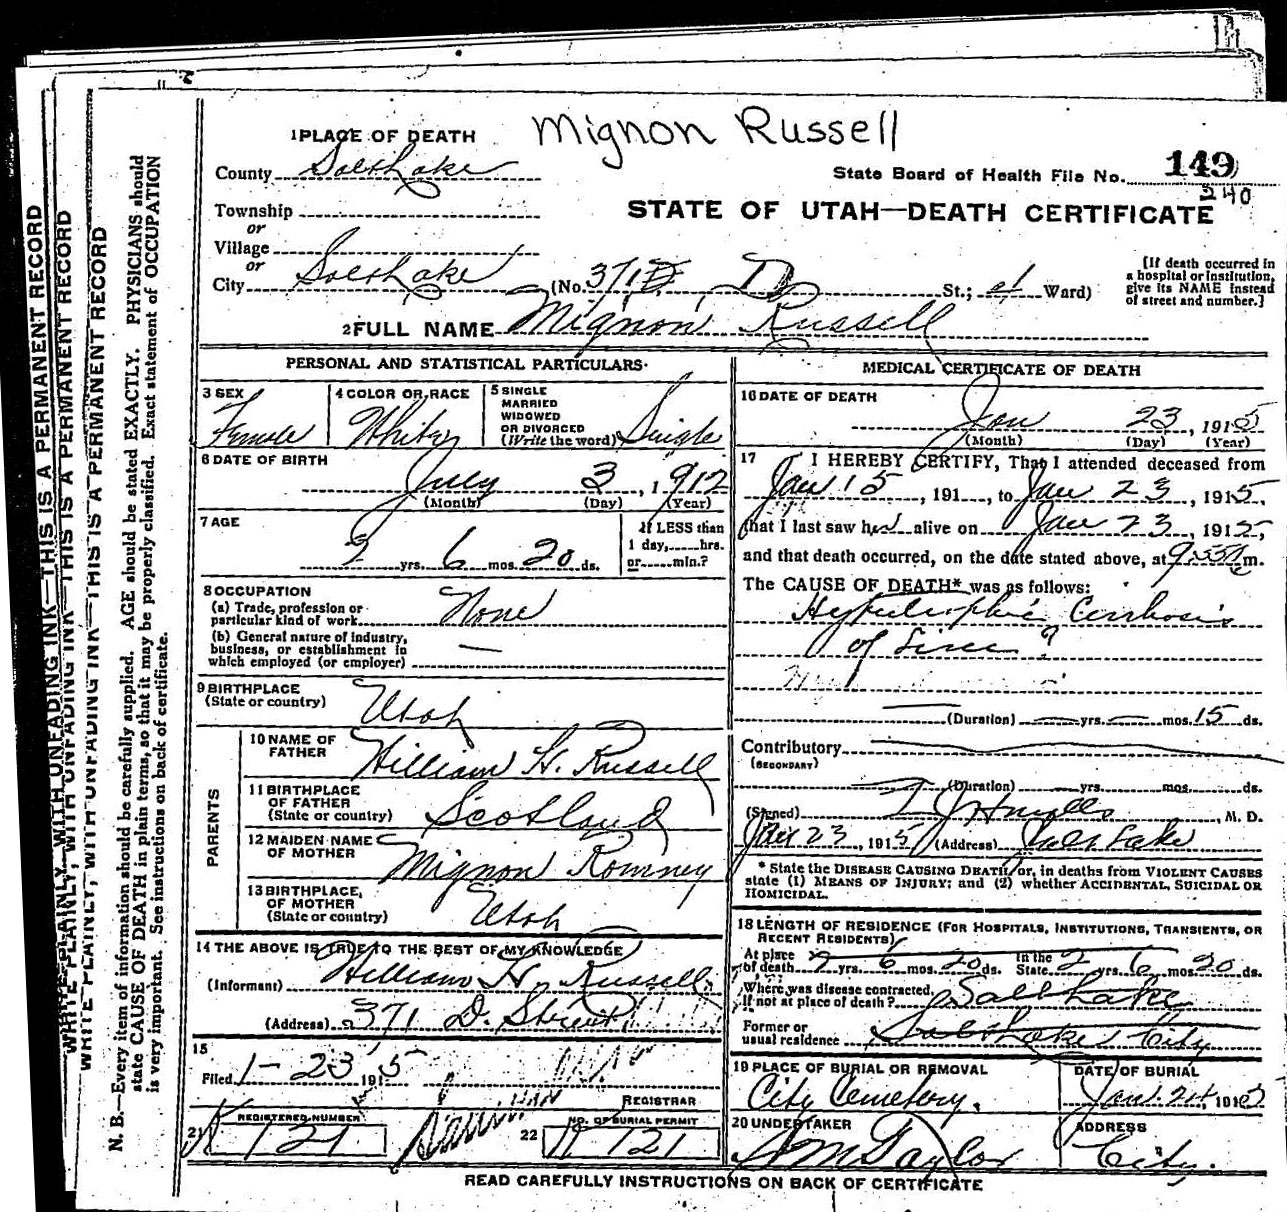 Mignon Russell
1 PLACE OF DEATH
County Salt Lake
State Board of Health File No. 149
240
Township
or
Village
or
City Salt Lake (No. 371 D St.; Ward)
STATE OF UTAH—DEATH CERTIFICATE
[If death occurred in a hospital or institution, give its NAME instead of street and number.]
2 FULL NAME Mignon Russell
PERSONAL AND STATISTICAL PARTICULARS
3 SEX Female
4 COLOR OR RACE White
5 SINGLE MARRIED WIDOWED OR DIVORCED (Write the word) Single
6 DATE OF BIRTH
July 3, 1912
(Month) (Day) (Year)
7 AGE
2 yrs. 6 mos. 20 ds.
If LESS than 1 day, hrs. or min.?
8 OCCUPATION
(a) Trade, profession or particular kind of work None
(b) General nature of industry, business, or establishment in which employed (or employer) —
9 BIRTHPLACE (State or country) Utah
PARENTS
10 NAME OF FATHER William H. Russell
11 BIRTHPLACE OF FATHER (State or country) Scotland
12 MAIDEN NAME OF MOTHER Mignon Romney
13 BIRTHPLACE, OF MOTHER (State or country) Utah
14 THE ABOVE IS TRUE TO THE BEST OF MY KNOWLEDGE
(Informant) William H. Russell
(Address) 371 D. Street
15
Filed 1-23 1915
REGISTRAR
21 REGISTERED NUMBER 121
22 NO. OF BURIAL PERMIT 121
MEDICAL CERTIFICATE OF DEATH
16 DATE OF DEATH
Jan 23, 1915
(Month) (Day) (Year)
17 I HEREBY CERTIFY, That I attended deceased from
Jan 15, 191 , to Jan 23, 1915,
that I last saw her alive on Jan 23, 1915,
and that death occurred, on the date stated above, at m.
The CAUSE OF DEATH* was as follows:
Hypertrophic Cirrhosis
of Liver ?
(Duration) — yrs. — mos. 15 ds.
Contributory
(SECONDARY)
(Duration) yrs. mos. ds.
(Signed) , M. D.
Jan 23, 1915 (Address) Salt Lake
* State the DISEASE CAUSING DEATH, or, in deaths from VIOLENT CAUSES
state (1) MEANS OF INJURY; and (2) whether ACCIDENTAL, SUICIDAL OR
HOMICIDAL.
18 LENGTH OF RESIDENCE (FOR HOSPITALS, INSTITUTIONS, TRANSIENTS, OR
RECENT RESIDENTS)
At place of death 2 yrs. 6 mos. 20 ds. In the State 2 yrs. 6 mos. 20 ds.
Where was disease contracted, if not at place of death? Salt Lake
Former or usual residence Salt Lake City
19 PLACE OF BURIAL OR REMOVAL City Cemetery.
DATE OF BURIAL Jan. 24, 1915
20 UNDERTAKER Taylor
ADDRESS City.
READ CAREFULLY INSTRUCTIONS ON BACK OF CERTIFICATE
WRITE PLAINLY, WITH UNFADING INK—THIS IS A PERMANENT RECORD
WRITE PLAINLY, WITH UNFADING INK—THIS IS A PERMANENT RECORD
WRITE PLAINLY, WITH UNFADING INK—THIS IS A PERMANENT RECORD
N. B.—Every item of information should be carefully supplied. AGE should be stated EXACTLY. PHYSICIANS should
state CAUSE OF DEATH in plain terms, so that it may be properly classified. Exact statement of OCCUPATION
is very important. See instructions on back of certificate.